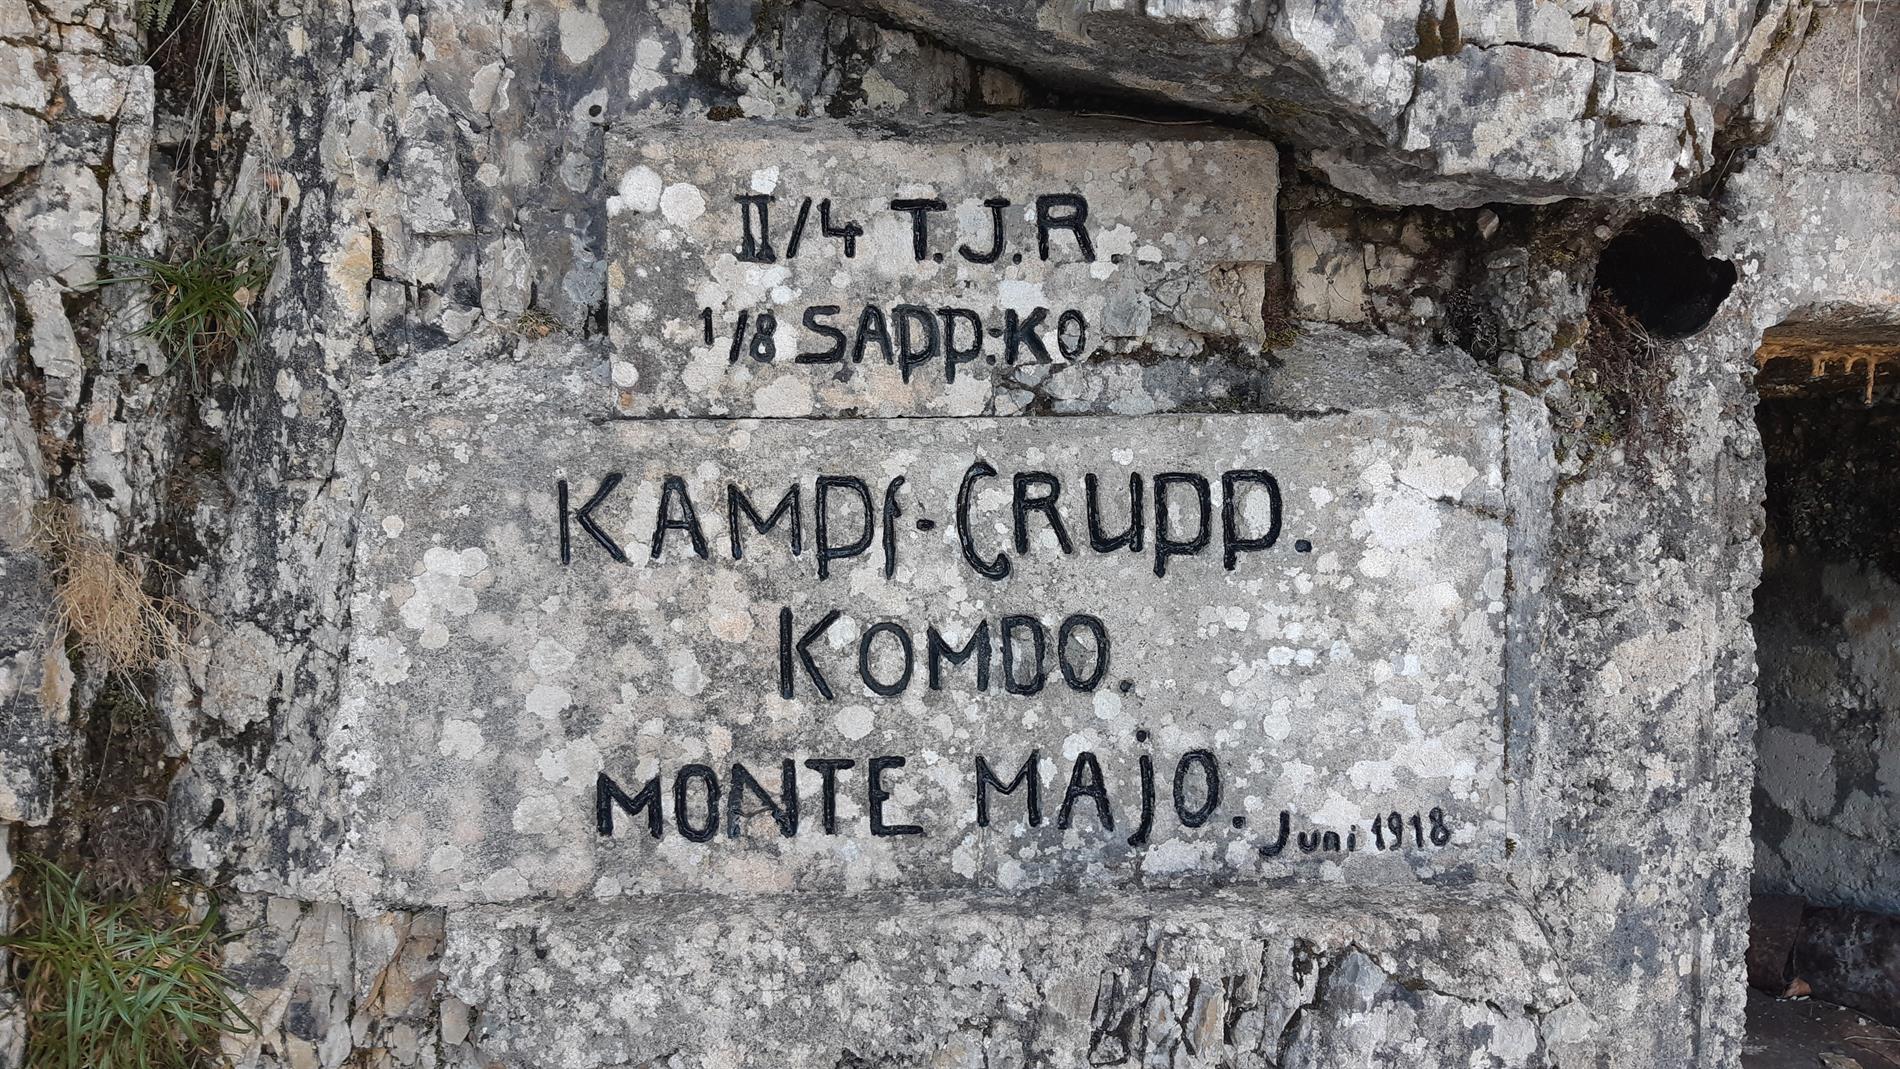 II/4 T.J.R.
1/8 SAPP.KO
KAMPF-GRUPP.
KOMDO.
MONTE MAJO. Juni 1918